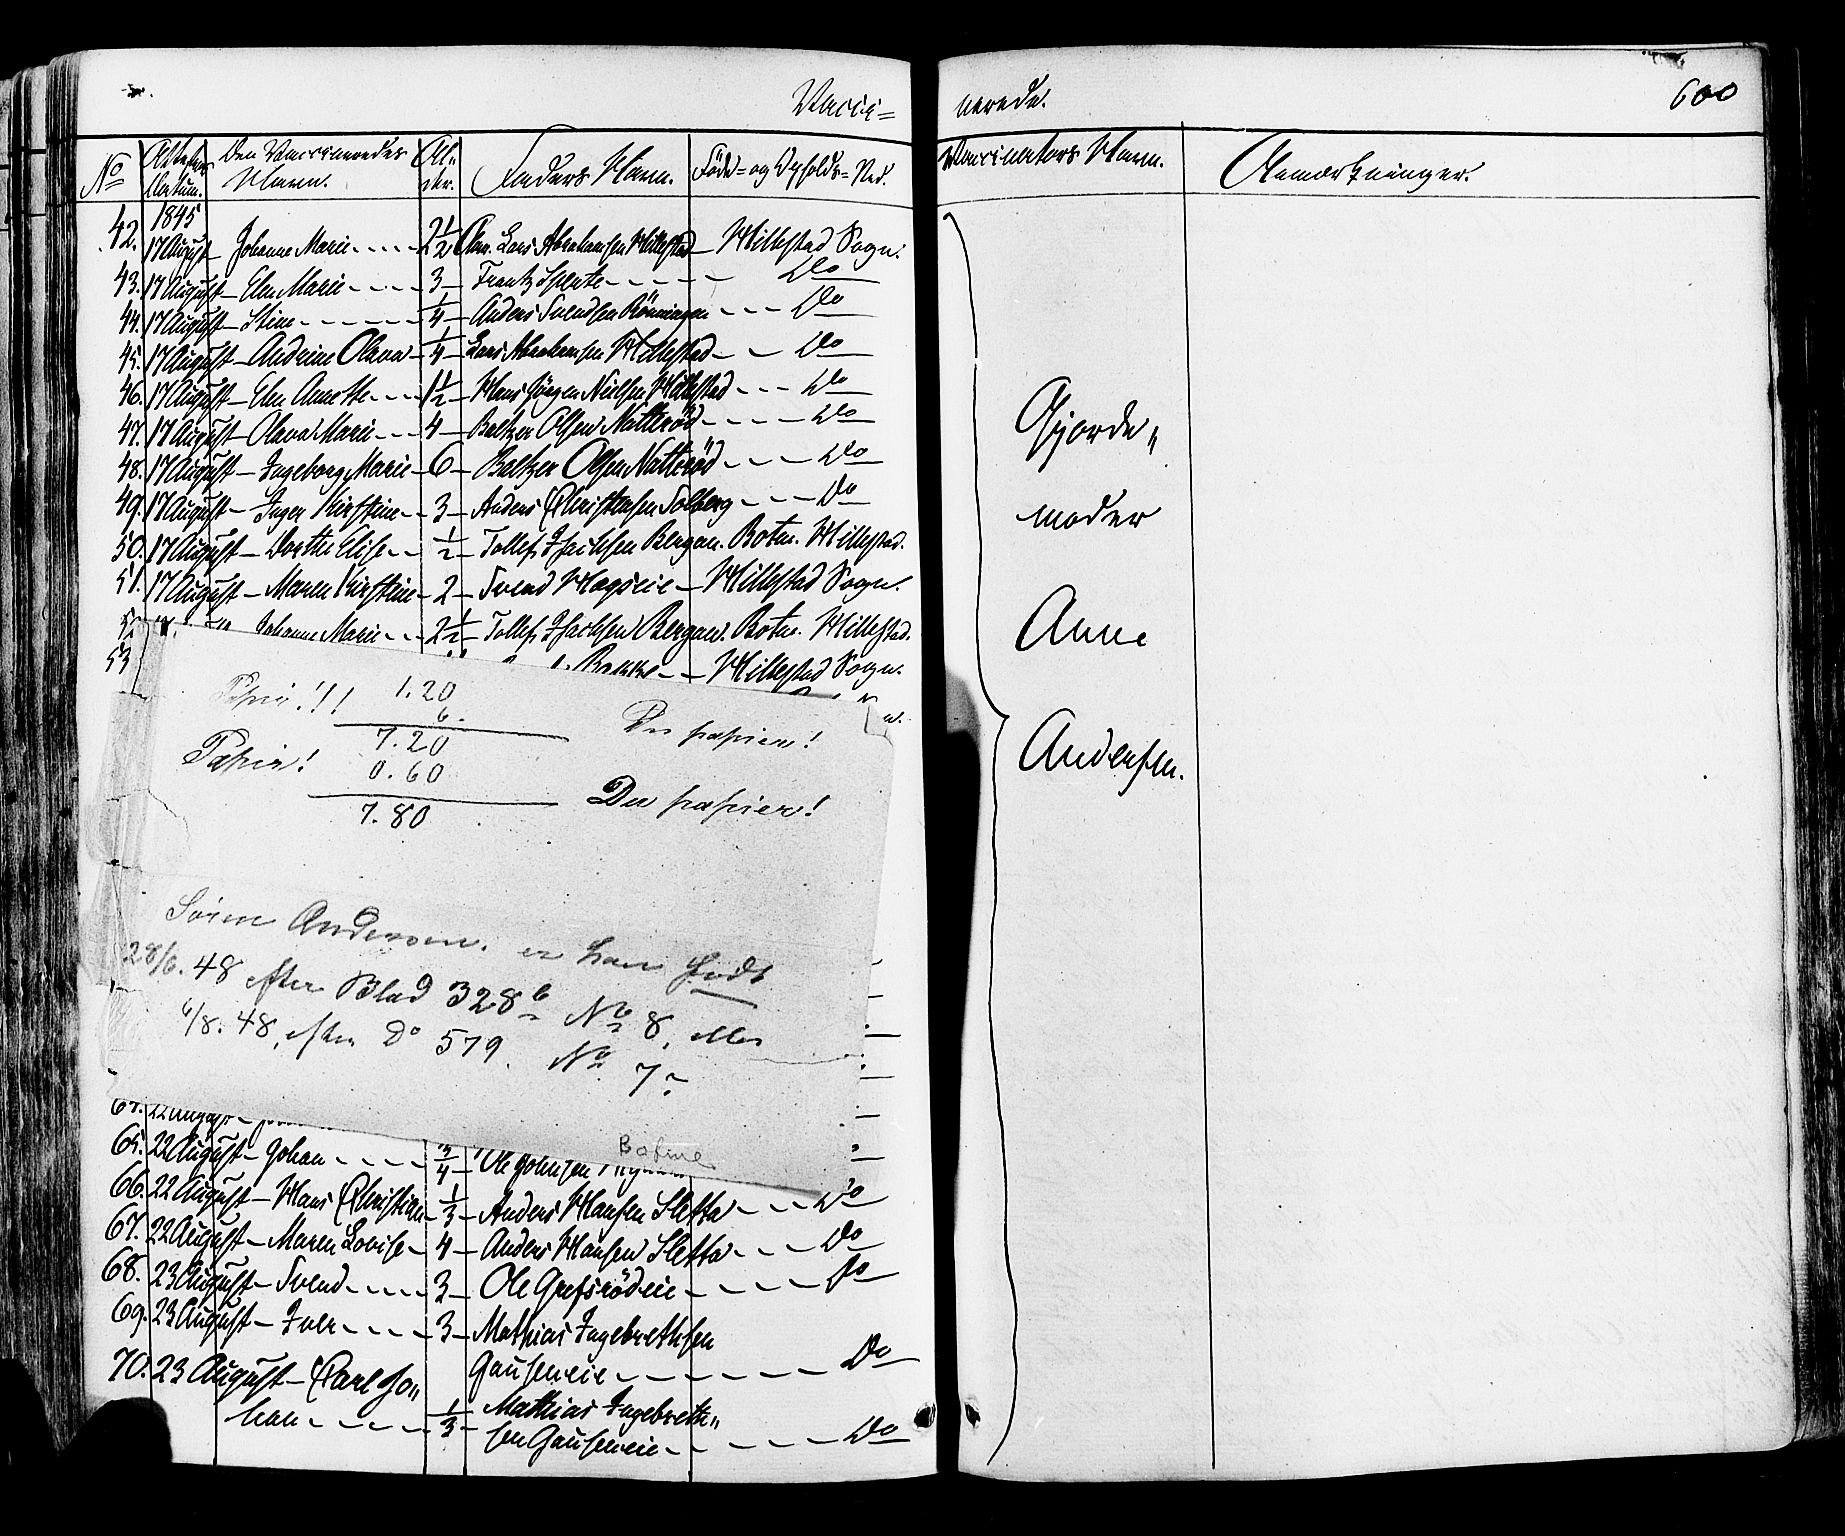 Vacci= nerede. 600
No Attestens Datum. Den Vaccineredes Navn. Al= der. Faders Navn. Føde= og Opholds= Sted. Vaccinators Navn. Anmærkninger.
1845
42. 17 August Johanne Marie 2 1/2 Lars Abrahamsen Hillestad Hillestad Sogn.
43. 17 August Elen Marie 3 Frantz Do
44. 17 August Stine 1/4 Anders Svendsen Rönningen Do
45. 17 August Andrine Olava 1/4 Lars Abrahamsen Hillestad Do
46. 17 August Elen Annette 1 1/2 Hans Jörgen Nielsen Hillestad Do
47. 17 August Olava Marie 4 Baltzer Olsen Natteröd Do
48. 17 August Ingeborg Marie 6 Baltzer Olsen Natteröd Do
49. 17 August Inger Kirstine 3 Anders Christensen Solberg Do
50. 17 August Dorthe Elise 1/2 Tollef Isachsen Bergan. Botne. Hillestad.
51. 17 August Maren Kirstine 2 Svend Hagseie Hillestad Sogn.
Johanne Marie 2 1/2 Tollef Isachsen Bergan. Botne. Hillestad.
53 Hillestad Sogn.
Papir!!! 1.20
6.
7.20 Du papier!
Papir! 0.60
7.80 Du papier!
Sören Andersen. er han född
28/6. 48 efter Blad 328b No 8, eller
6/8. 48, efter Do 579. No 7?
Botne
22 August
65. 22 August Johan 3/4 Ole Johnsen
66. 22 August Hans Christian 1/3 Anders Hansen Sletta Do
67. 22 August Maren Lovise 4 Anders Hansen Sletta Do
68. 23 August Svend 3 Ole Grefsrödeie Do
69. 23 August Iver 3 Mathias Ingebrethsen
Gauseneie Do
70. 23 August Carl Jo„
han 1/3 Mathias Ingebreth„
sen Gauseneie Do
Gjorde„
moder
Anne
Andersen.